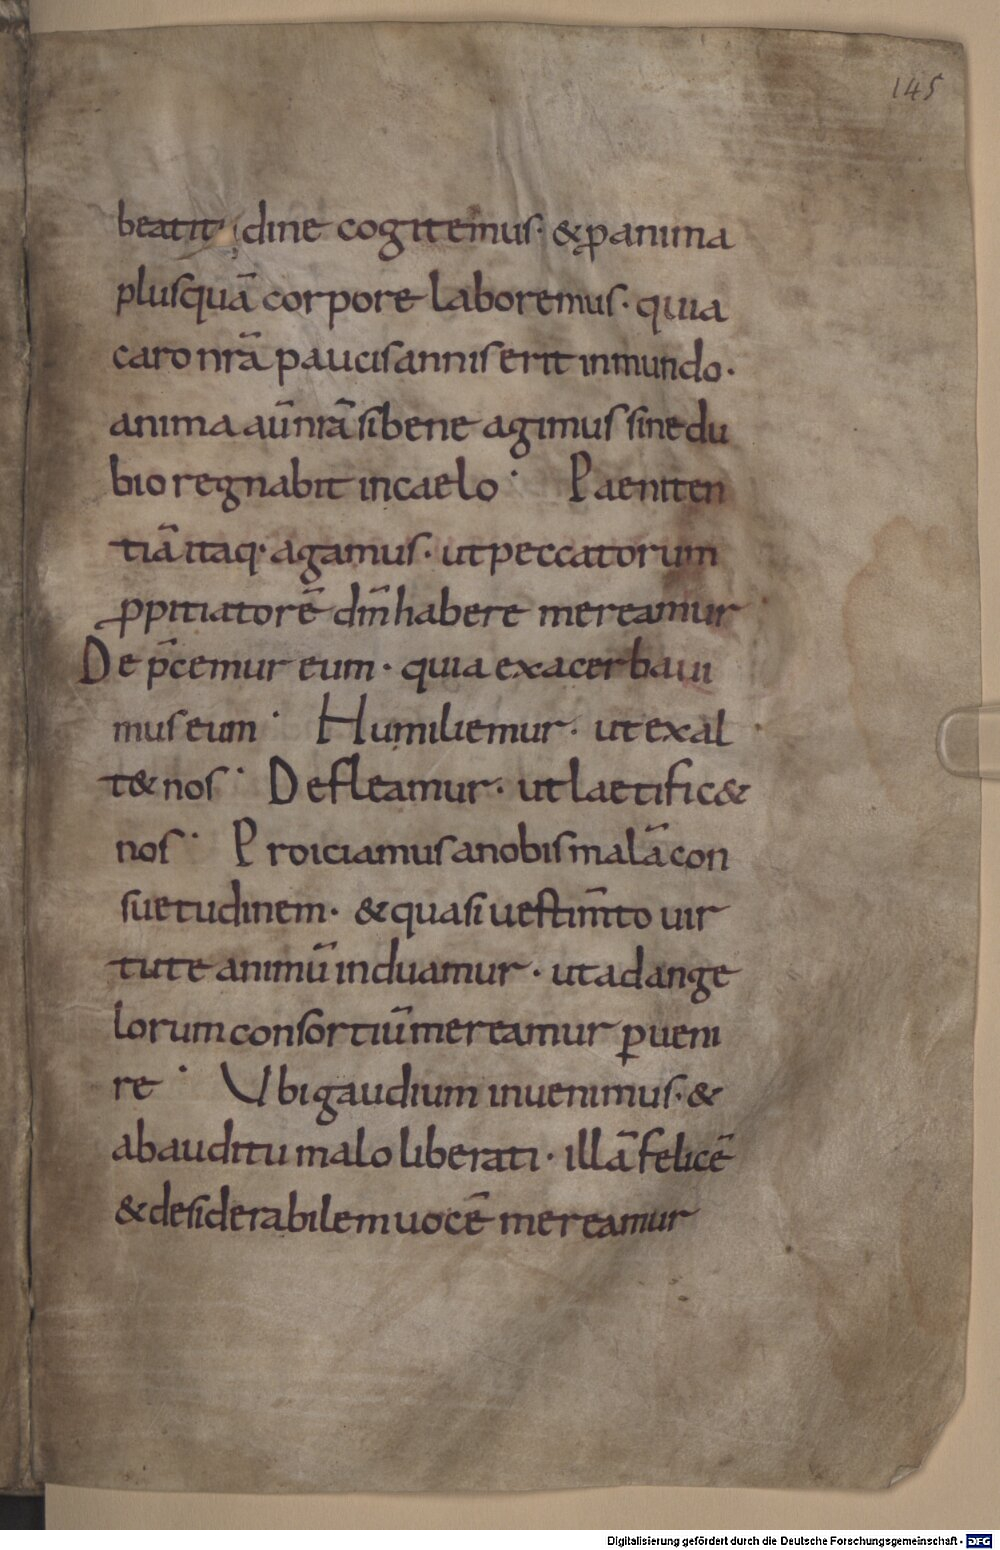 145
beatitudine cogitemus· & ꝓanima
plusquā corpore laboremus· quia
caro nrā paucis annis erit inmundo·
anima aūnrā si bene agimus sine du
bio regnabit incaelo· Paeniten
tiā itaq· agamus· ut peccatorum
ꝓpitiatorē dm̄ habere mereamur
De p̄cemur eum· quia exacerbaui
mus eum· Humiliemur· ut exal
t& nos· Defleamur· ut laetific&
nos· Proiciamus a nobis malā con
suetudinem· & quasi uestim̄to uir
tute animū induamur· ut ad ange
lorum consortiū mereamur ꝑueni
re· Ubi gaudium inuenimus· &
ab auditu malo liberati· illā felicē
& desiderabilem uocē mereamur
Digitalisierung gefördert durch die Deutsche Forschungsgemeinschaft - DFG